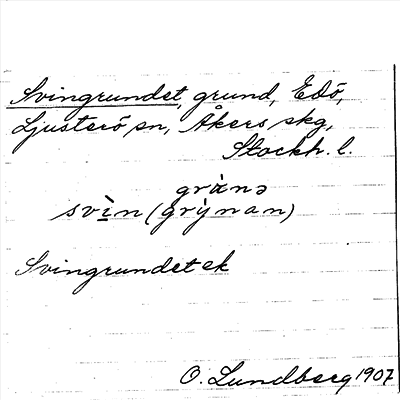 Svingrundet, grund, Edö,
Ljusterö sn, Åkers skg,
Stockh. l.
grùnə
svìn (grỳnan)
Svingrundet ek
O. Lundberg 1907